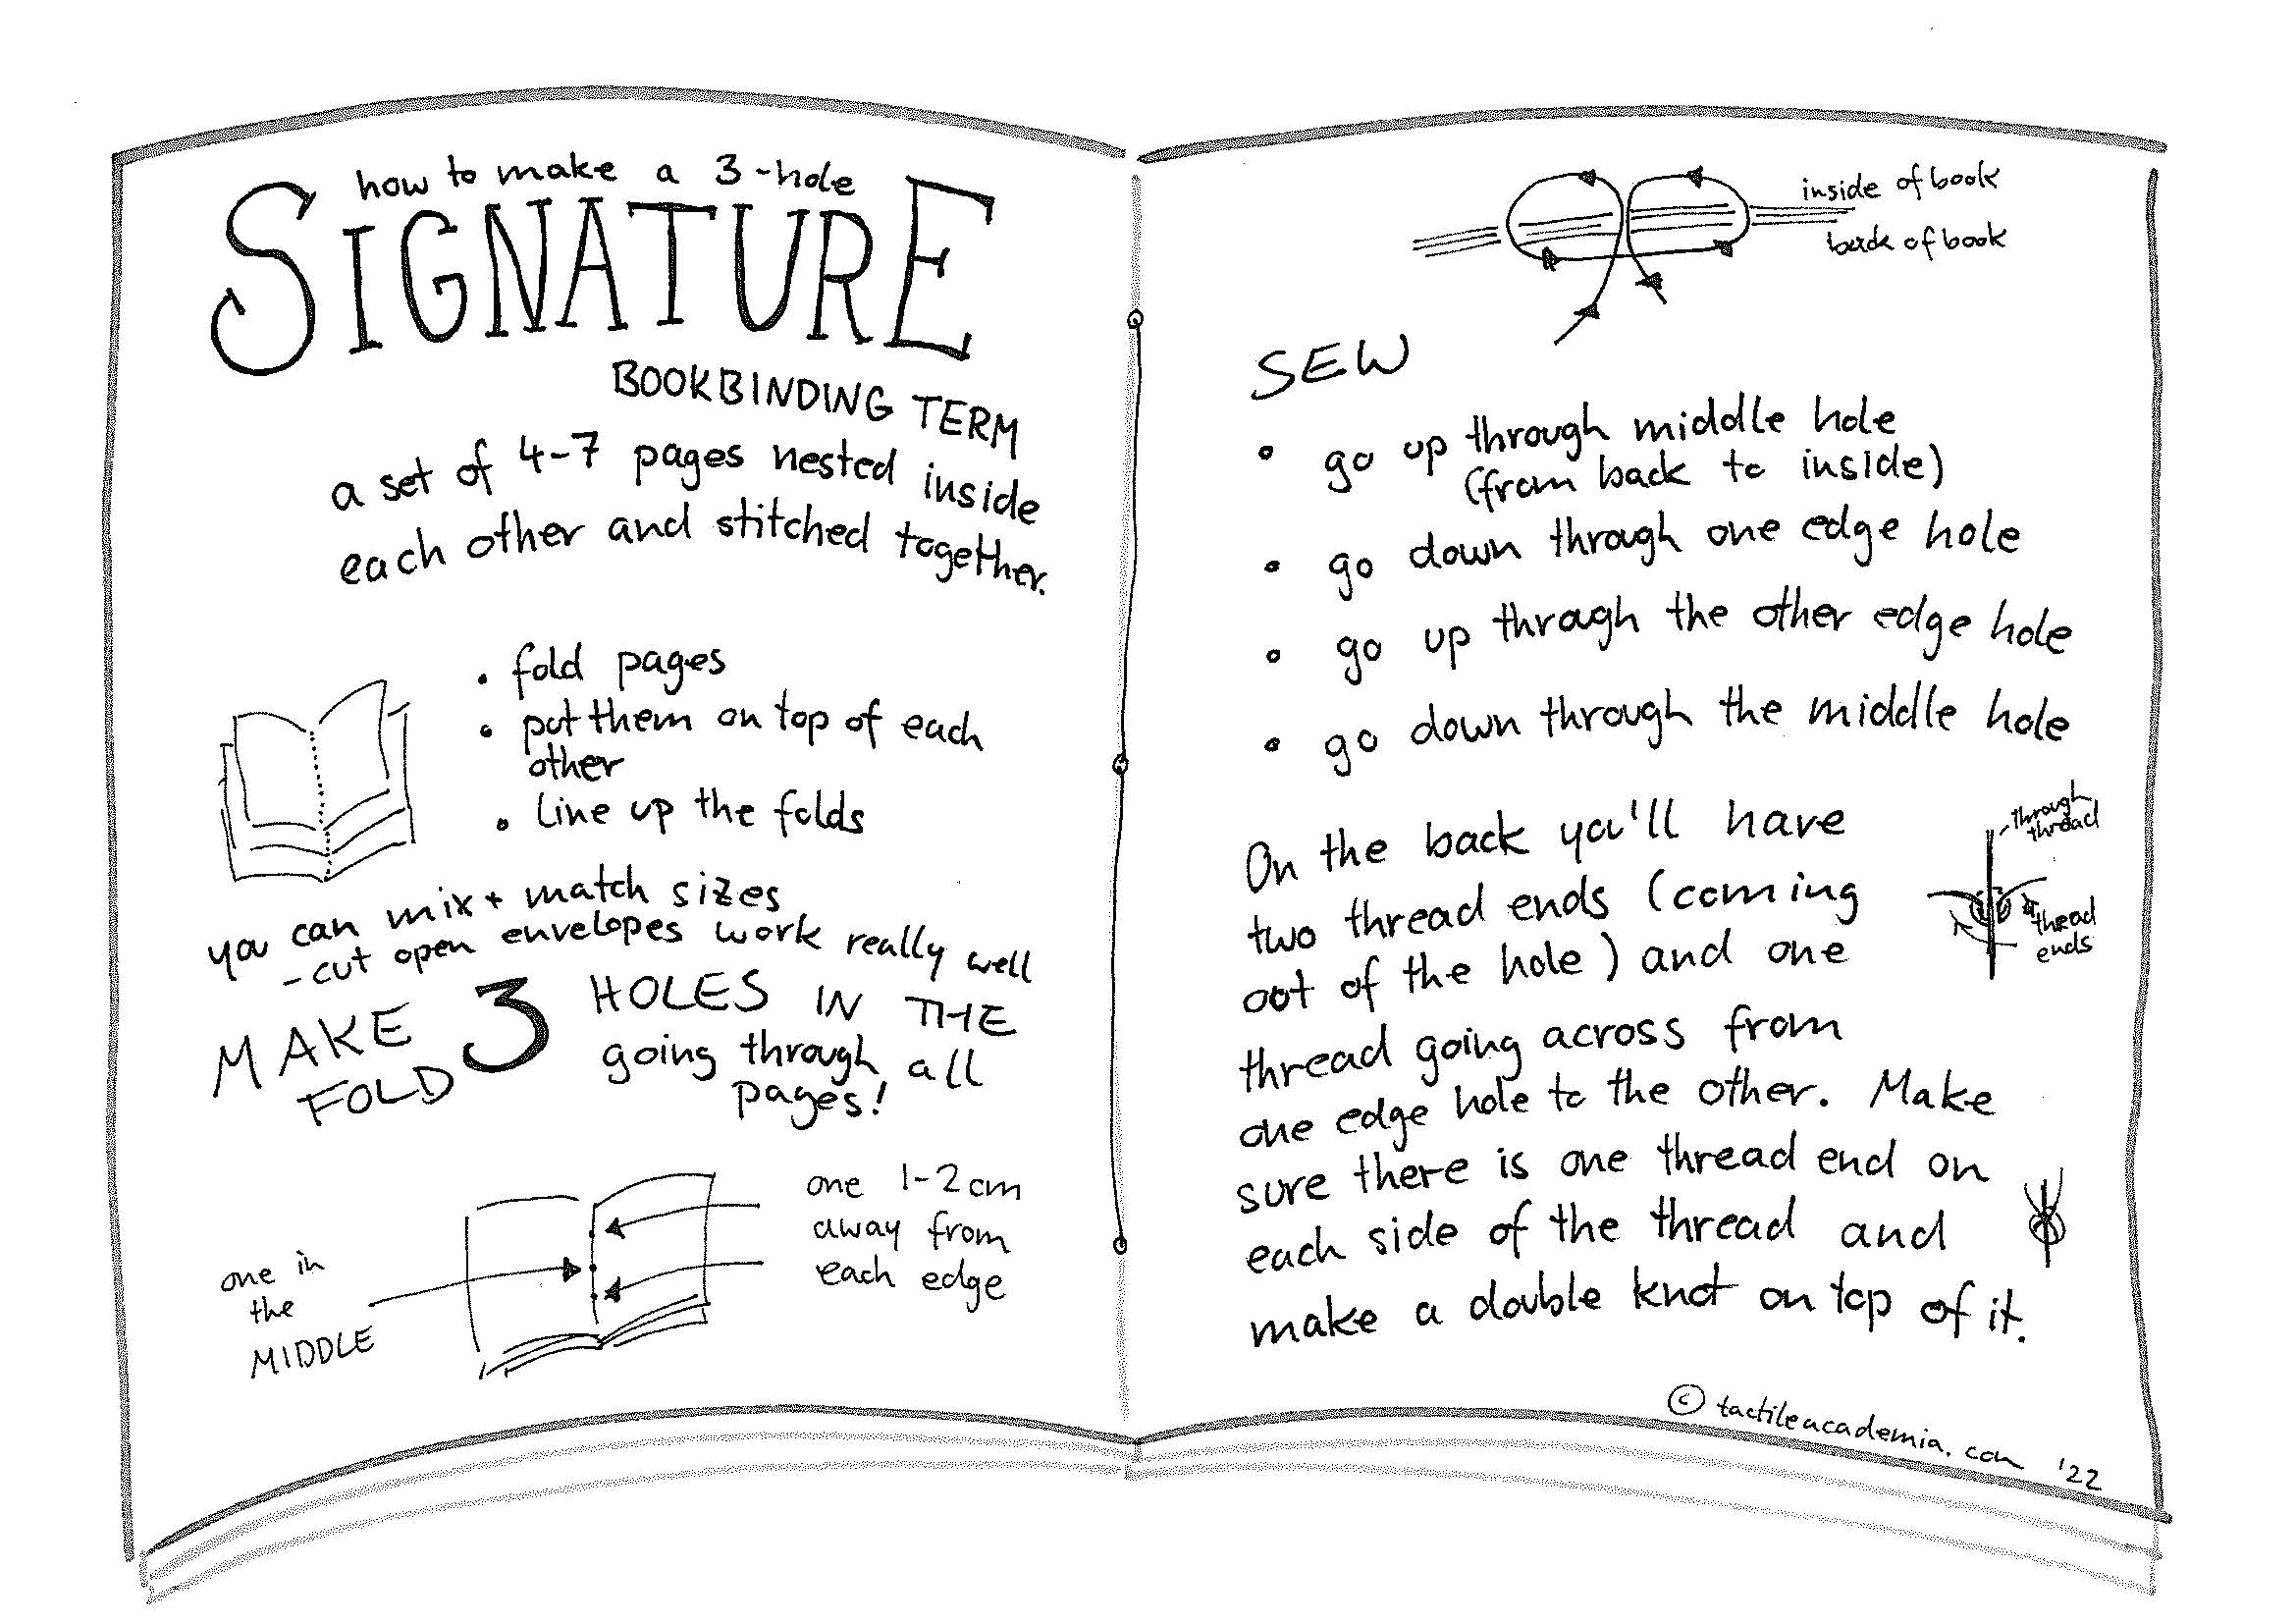 how to make a 3-hole
SIGNATURE
BOOKBINDING TERM
a set of 4-7 pages nested inside
each other and stitched together.
• fold pages
• put them on top of each
other
• line up the folds
you can mix + match sizes
- cut open envelopes work really well
MAKE 3 HOLES IN THE
FOLD going through all
pages!
one in
the
MIDDLE
one 1-2cm
away from
each edge
inside of book
back of book
SEW
• go up through middle hole
(from back to inside)
• go down through one edge hole
• go up through the other edge hole
• go down through the middle hole
On the back you'll have
two thread ends (coming
out of the hole) and one
thread going across from
one edge hole to the other. Make
sure there is one thread end on
each side of the thread and
make a double knot on top of it.
through
thread
thread
ends
© tactileacademia.com '22